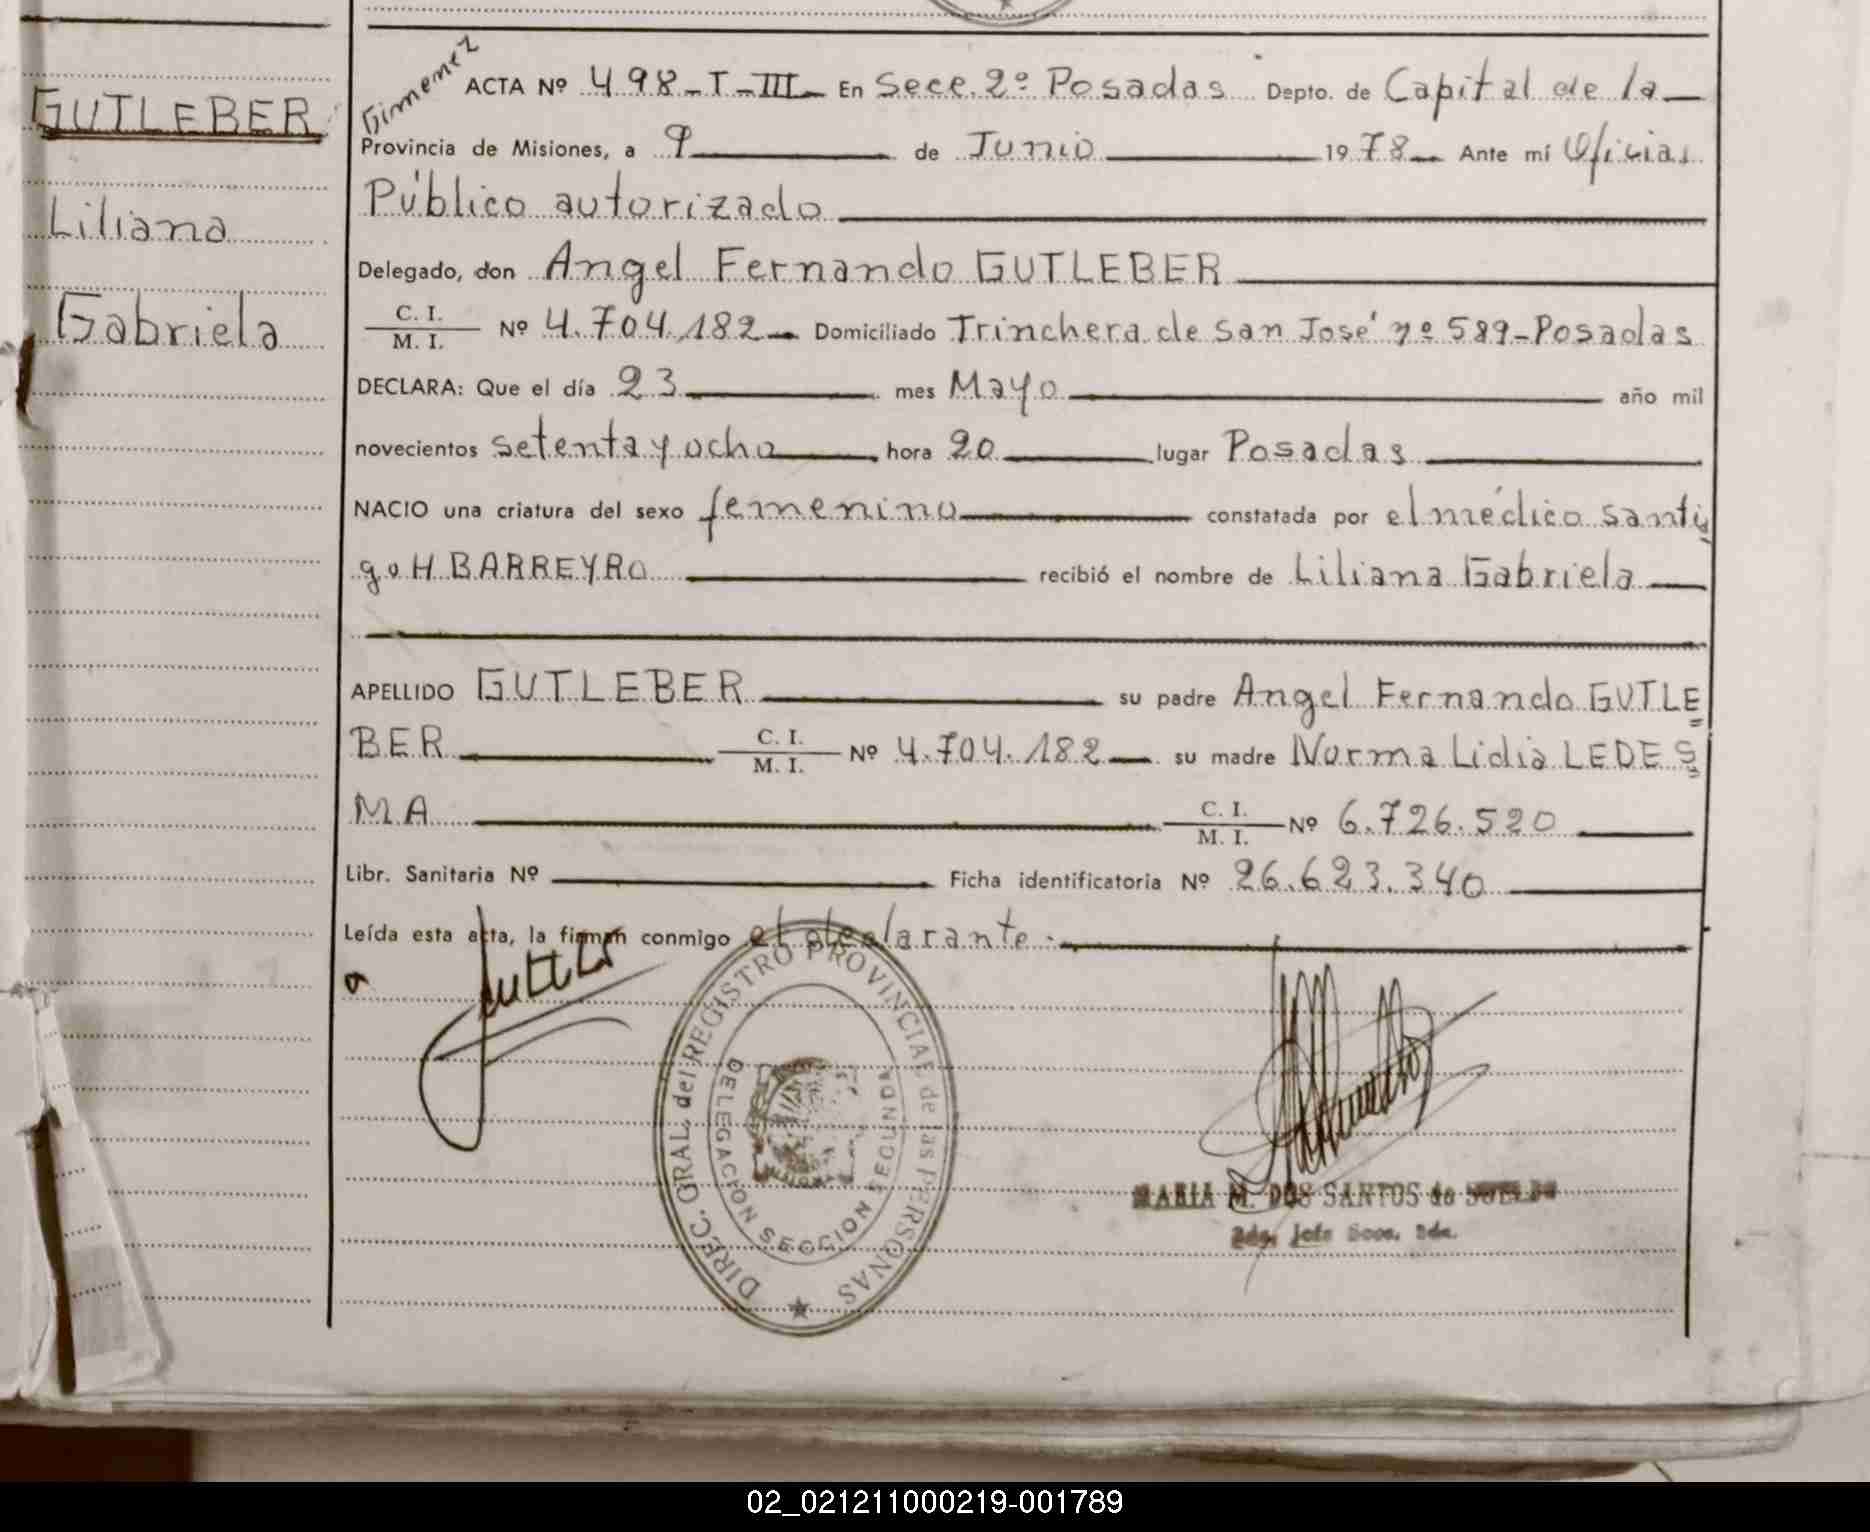 GUTLEBER
Liliana
Gabriela
Gimenez
ACTA Nº 498-T-III- En Secc. 2º Posadas Depto. de Capital de la
Provincia de Misiones, a 9 de Junio 1978 Ante mí Oficial
Público autorizado
Delegado, don Angel Fernando GUTLEBER
C. I.
M. I. Nº 4.704.182 Domiciliado Trinchera de San José nº 589-Posadas
DECLARA: Que el día 23 mes Mayo año mil
novecientos setenta y ocho hora 20 lugar Posadas
NACIO una criatura del sexo femenino constatada por el médico Santia
go H BARREYRO recibió el nombre de Liliana Gabriela
APELLIDO GUTLEBER su padre Angel Fernando GUTLE
BER C. I.
M. I. Nº 4.704.182 su madre Norma Lidia LEDES
MA C. I.
M. I. Nº 6.726.520
Libr. Sanitaria Nº Ficha identificatoria Nº 26.623.340
Leída esta acta, la firman conmigo el declarante.
DIREC. GRAL. del REGISTRO PROVINCIAL de las PERSONAS
DELEGACION SECCION SEGUNDA
MARIA M. DOS SANTOS de
02_021211000219-001789